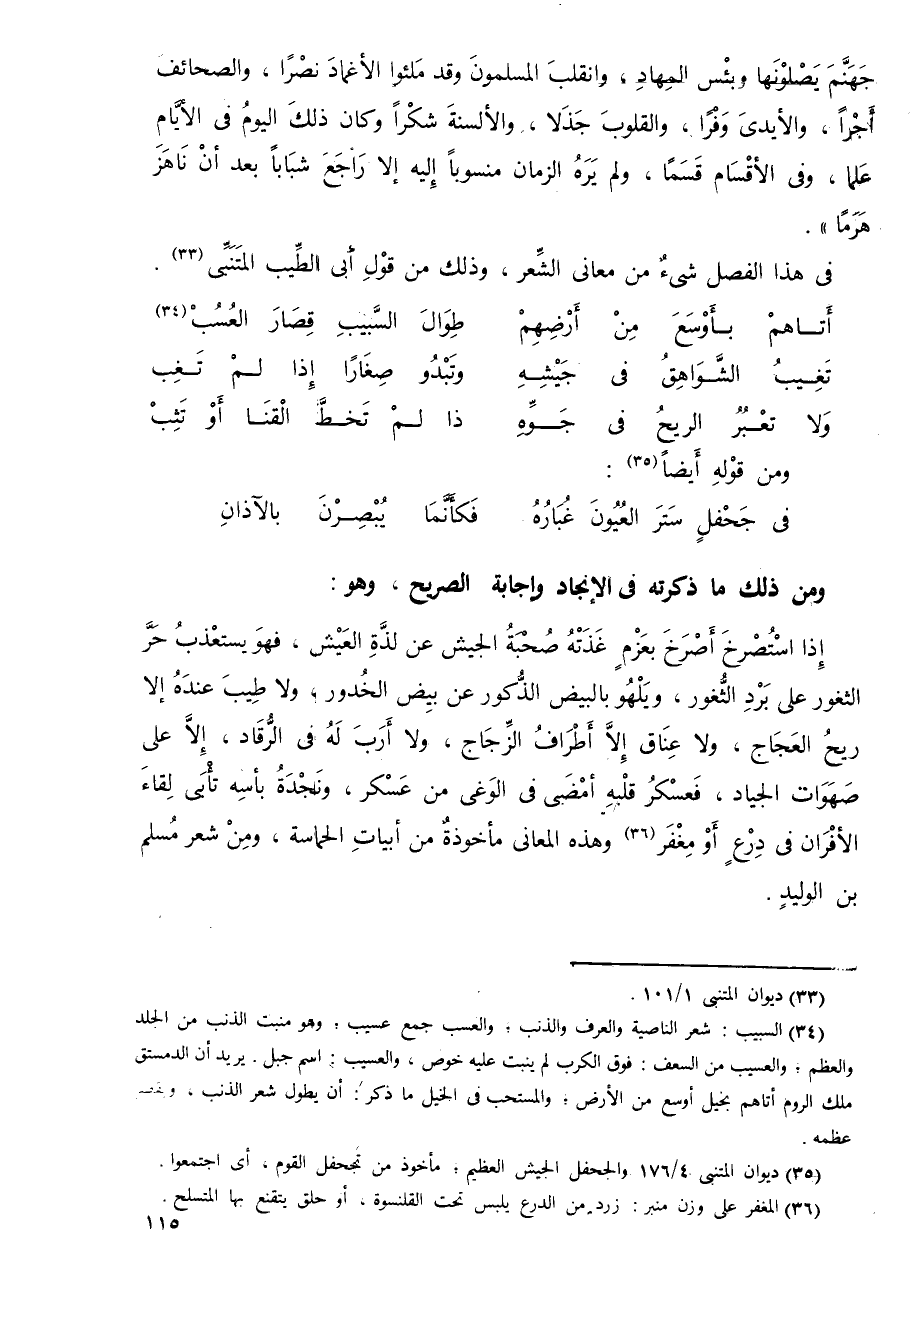 جَهَنَّمَ يَصْلَوْنَها وبئْس المِهادِ ، وانقلبَ المسلمونَ وقد مَلئوا الأغمادَ نصْرًا ، والصحائفَ
أَجْراً ، والأيدىَ وَفْرًا ، والقلوبَ جَذَلا ، والألسنةَ شكْراً وكان ذلكَ اليومُ فى الأيَّام
عَلما ، وفى الأقْسَام قَسَمًا ، ولم يَرَهُ الزمان منسوباً إليه إلا رَاجَعَ شبَاباً بعد أنْ نَاهَزَ
هَرَمًا » .
فى هذا الفصل شىءٌ من معانى الشِّعر ، وذلك من قوْلِ أبى الطِّيب المتَنَبِّى(٣٣) .
أَتـــاهمْ بــأَوْسَعَ مِنْ أَرْضِهِمْ طِوَالَ السَّبِيبِ قِصَارَ العُسُبْ(٣٤)
تَغِـيبُ الشَّـوَاهِقُ فى جَيْشِـهِ وتَبْدُو صِغَارًا إذا لــمْ تَـغِب
وَلا تعْـبُرُ الريحُ فى جَـــوِّهِ ذا لــمْ تَخـطَّ الْقنَـا أَوْ تَثِبْ
ومن قوْلهِ أَيضاً(٣٥) :
فى جَحْفلٍ سَتَرَ العُيُونَ غُبَارُهُ فَكأَنَّمَا يُبْصِـرْنَ بالآذانِ
ومن ذلك ما ذكرته فى الإنجاد وإجابة الصريح ، وهو :
إِذا اسْتُصْرِخَ أَصْرَخَ بعَزْمٍ غَذَتْهُ صُحْبَةُ الجيش عن لذَّةِ العَيْش ، فهوَ يستعْذبُ حَرَّ
الثغور على بَرْدِ الثُّغور ، ويَلْهُو بالبيض الذُّكور عن بيِض الخُدور ، ولا طِيبَ عندَهُ إلا
ريحُ العَجَاج ، ولا عِناق إِلاَّ أَطْرَافُ الزِّجَاج ، ولا أَرَبَ لَهُ فى الرُّقَاد ، إِلاَّ على
صَهَوَات الجياد ، فَعسْكرُ قلبهِ أمْضَى فى الوَغى من عَسْكر ، ونَجْدَةُ بأسِه تأْبَى لِقاءَ
الأقْرَان فى دِرْعٍ أَوْ مِغْفَر(٣٦) وهذه المعانى مأخوذةٌ من أبياتِ الحماسة ، ومِنْ شعر مُسلم
بن الوليدِ .
(٣٣) ديوان المتنبى ١٠١/١ .
(٣٤) السبيب : شعر الناصية والعرف والذنب ؛ والعسب جمع عسيب ؛ وهو منبت الذنب من الجلد
والعظم ؛ والعسيب من السعف : فوق الكرب لم ينبت عليه خوص ، والعسيب : اسم جبل . يريد أن الدمستق
ملك الروم أتاهم بخيل أوسع من الأرض ؛ والمستحب فى الخيل ما ذكر : أن يطول شعر الذنب ،
عظمه .
(٣٥) ديوان المتنبى ١٧٦/٤ والجحفل الجيش العظيم ؛ مأخوذ من تجحفل القوم ، أى اجتمعوا .
(٣٦) المغفر على وزن منبر : زرد من الدرع يلبس تحت القلنسوة ، أو حلق يتقنع بها المتسلح .
١١٥